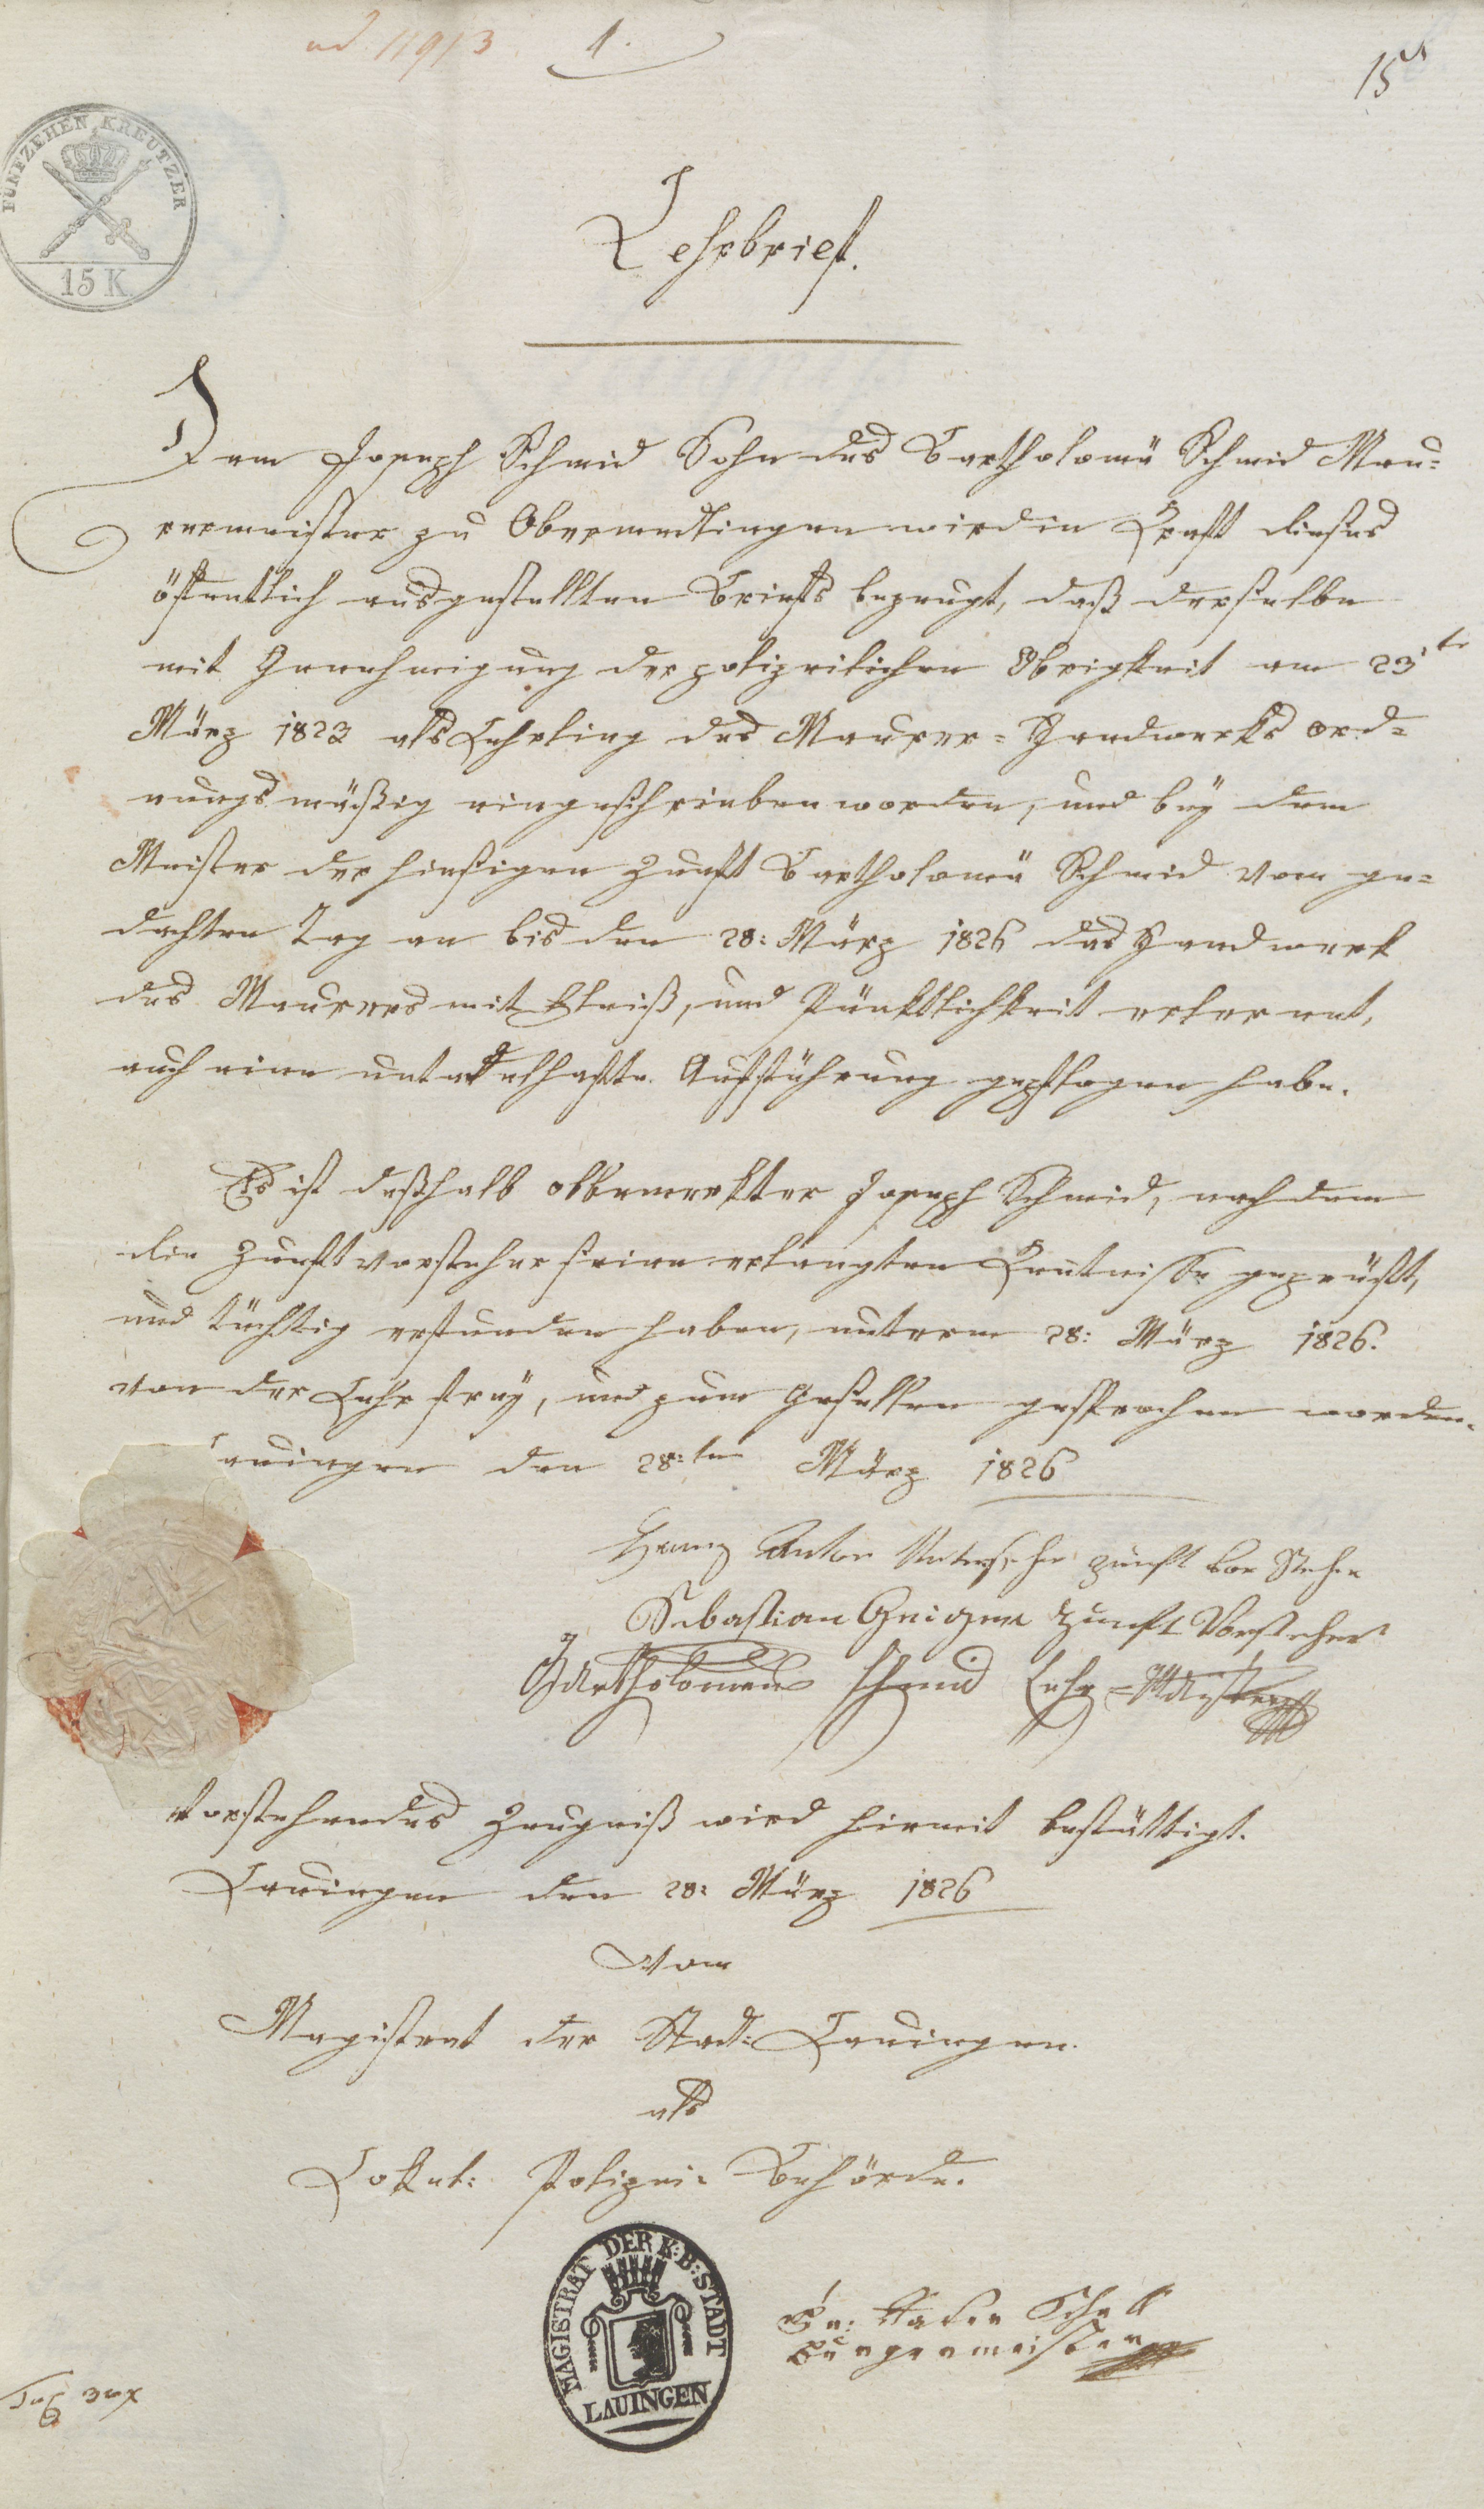 ad 11913
1.
15
FÜNFZEHEN KREUTZER
15 K
Lehrbrief.
Dem Joseph Schmid Sohn des Bartholomä Schmid Mau=
rermeister zu Obermedlingen wird in Kraft dieses
öffentlich ausgestellten Briefs bezeugt, daß derselbe
mit Genehmigung der polizeilichen Obrigkeit am 23te
März 1823 als Lehrling des Maurer=Handwerks ord=
nungsmäßig eingeschrieben worden, und bey dem
Meister der hiesigen Zunft Bartholomä Schmid vom ge=
dachten Tag an bis den 28: März 1826 das Handwerk
des Maurers mit Fleiß, und Pünktlichkeit erlernt,
auch eine untadelhafte Aufführung gepflogen habe.
Es ist deßhalb obbemerkter Joseph Schmid, nachdem
die Zunftvorsteher seine erlangten Kentnisse geprüft,
und tüchtig erfunden haben, unterm 28: März 1826.
von der Lehr frey, und zum Gesellen gesprochen worden.
Lauingen den 28:ten März 1826
Anton zunft vor Steher
Sebastian Geiger Zunft Vorsteher
Bartholomeus Schmid Lehr=Meister
Vorstehendes Zeugniß wird hiemit bestättigt.
Lauingen den 28: März 1826
Vom
Magistrat der Stadt Lauingen.
als
Lokal: Polizei: Behörde.
MAGISTRAT DER K: B: STADT
LAUINGEN
Burgermeister
Tax